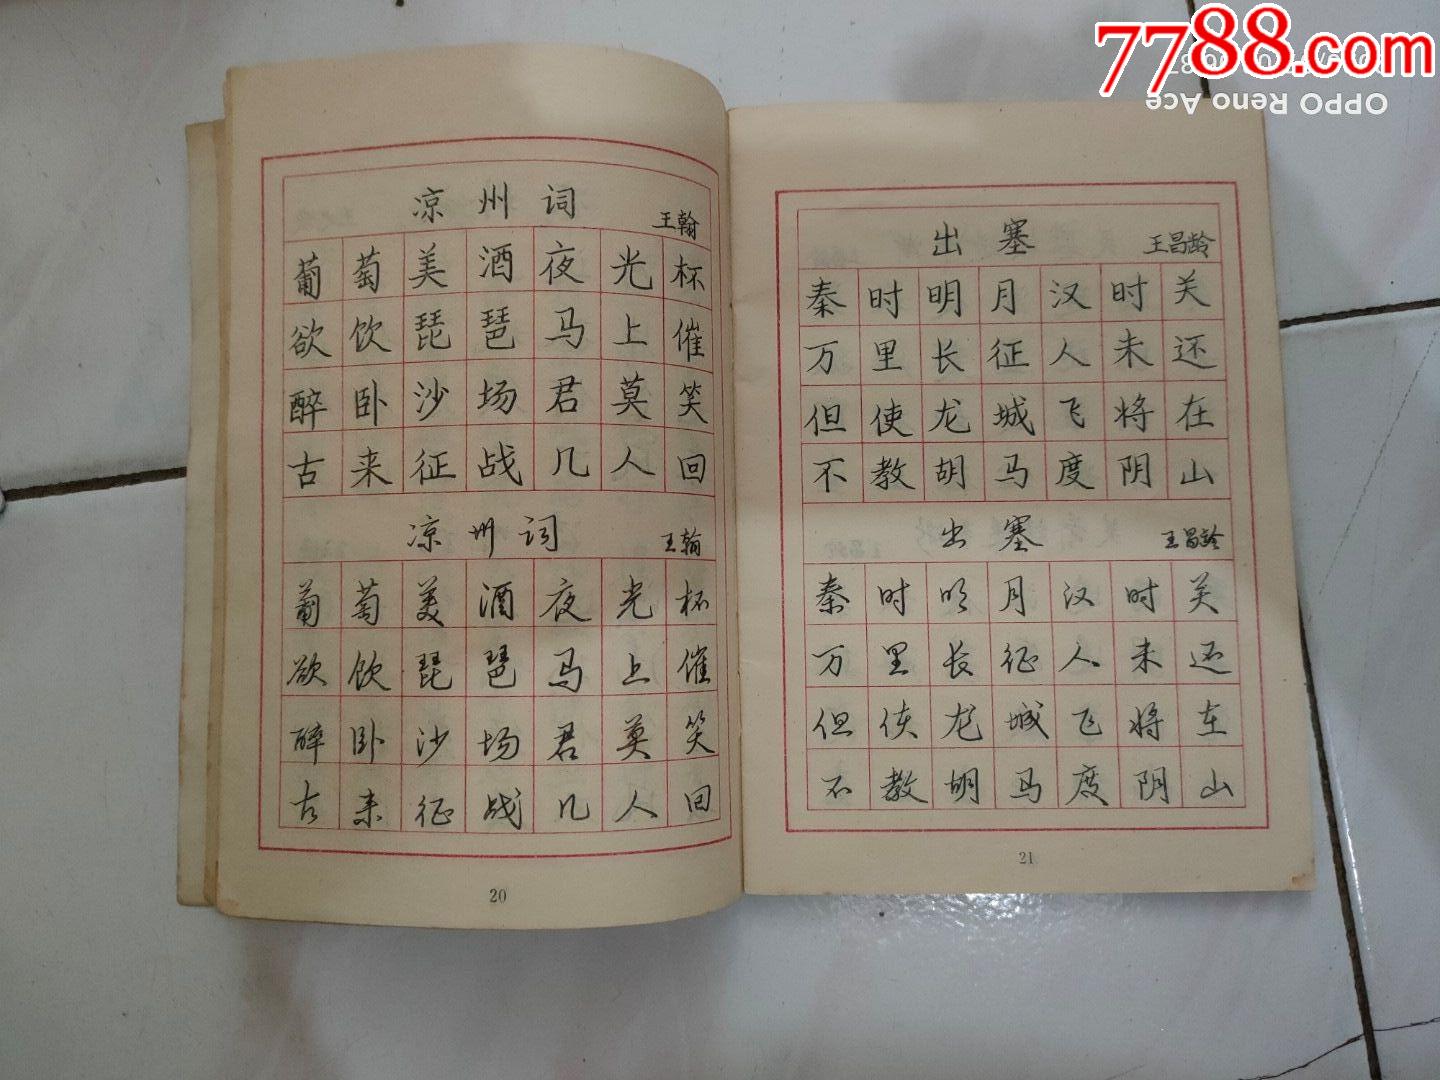 7788.com
OPPO Reno Ace
凉州词
王翰
葡萄美酒夜光杯
欲饮琵琶马上催
醉卧沙场君莫笑
古来征战几人回
凉州词
王翰
葡萄美酒夜光杯
欲饮琵琶马上催
醉卧沙场君莫笑
古来征战几人回
20
出塞
王昌龄
秦时明月汉时关
万里长征人未还
但使龙城飞将在
不教胡马度阴山
出塞
王昌龄
秦时明月汉时关
万里长征人未还
但使龙城飞将在
不教胡马度阴山
21